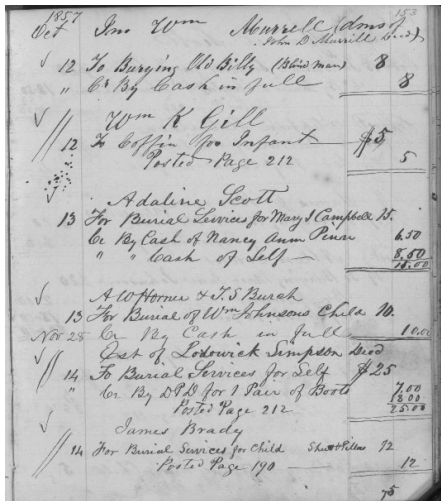 1857 153
Oct Jno Wm Murrell Admr of
John D. Murrill Decd
12 To Burying Old Billy (Blind Man) 8
" Cr By Cash in full 8
Wm K Gill
12 To Coffin for Infant $5
Posted Page 212 5
Adaline Scott
13 For Burial Services for Mary J Campbell 15.
Cr By Cash of Nancy Ann Penn 6.50
" " Cash of Self 8.50
15.00
A W Horner & T. S Burch
13 For Burial of Wm Johnsons Child 10.
Nov 28 Cr By Cash in full 10.00
Est of Lodowick Simpson Decd
14 To Burial Services for Self $25
" Cr By D P D for 1 Pair of Boots 7.00
18.00
Posted Page 212 25.00
James Brady
14 For Burial Services for Child 12
Posted Page 190 12
75